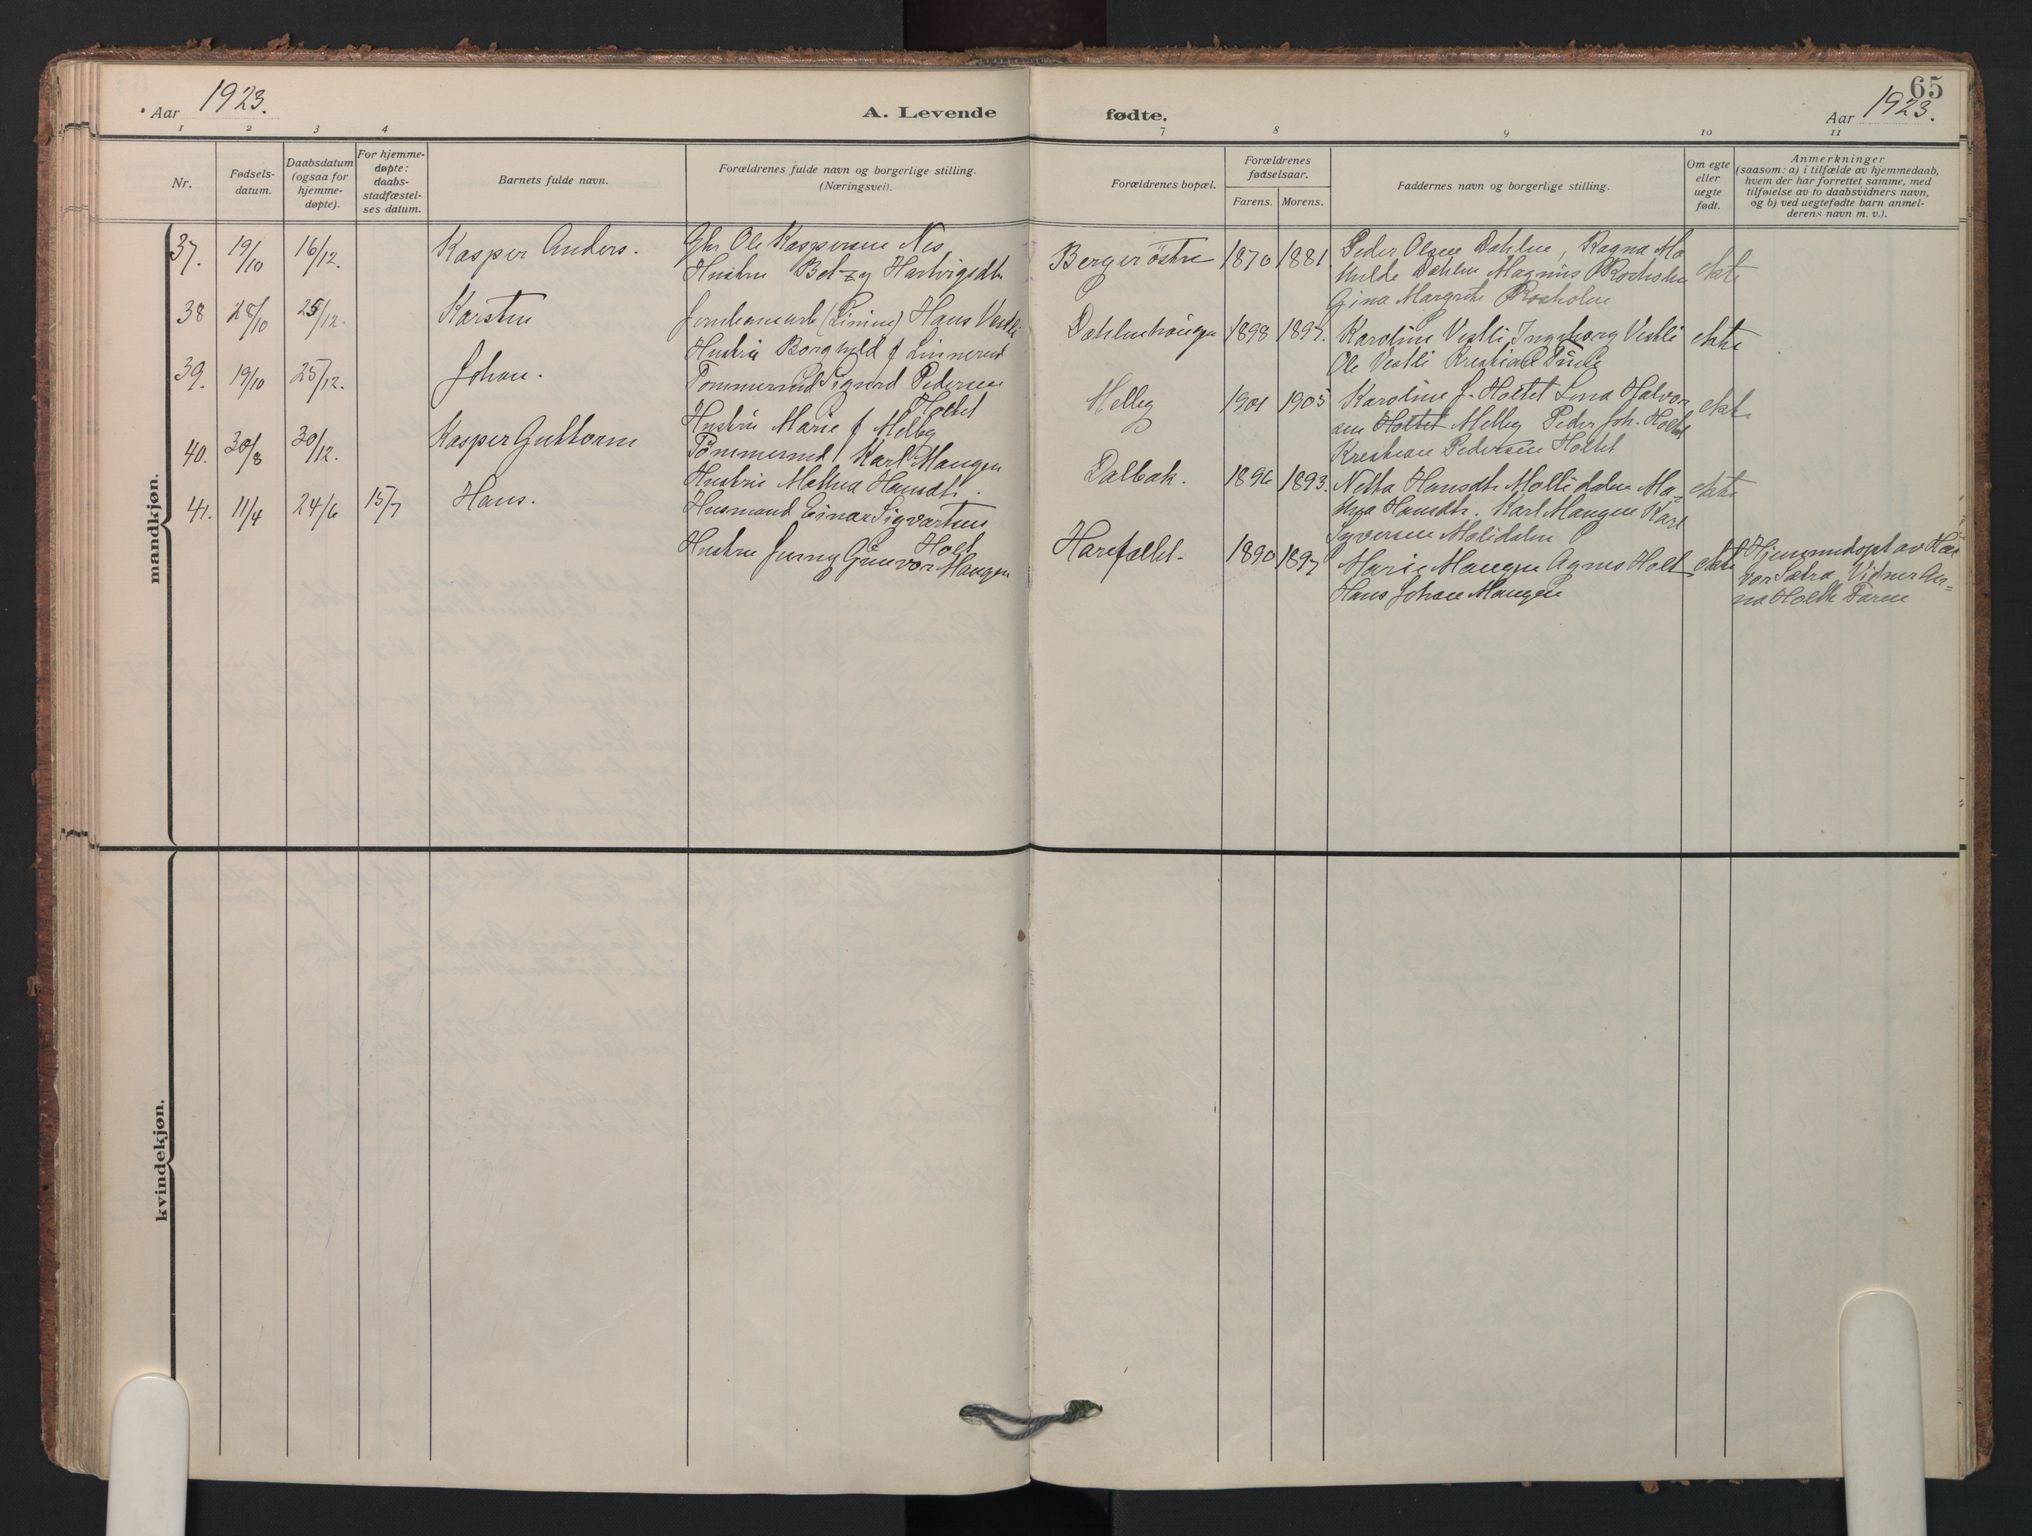 65
Aar 1923.
A. Levende fødte.
Aar 1923.
1 2 3 4 7 8 9 10 11
Nr.
Fødsels-
datum.
Daabsdatum
(ogsaa for
hjemme-
døpte).
For hjemme-
døpte:
daabs-
stadfæstel-
ses datum.
Barnets fulde navn.
Forældrenes fulde navn og borgerlige stilling.
(Næringsvei).
Forældrenes bopæl.
Forældrenes
fødselsaar.
Farens. Morens.
Faddernes navn og borgerlige stilling.
Om egte
eller
uegte
født.
Anmerkninger
(saasom: a) i tilfælde av hjemmedaab,
hvem der har forrettet samme, med
tilføielse av to daabsvidners navn,
og b) ved uegtefødte barn anmel-
derens navn m. v.).
mandkjøn.
37. 19/10 16/12. Kasper Anders.
Gbr Ole Kaspersen Nes,
Hustru Betzy Hartvigsdt
Berger östre 1870 1881
Peder Olsen Dahlen, Ragna Ma
hilde Dahlen Magnus Rosholm
Gina Margrete Rosholm
ekte
38 28/10 25/12. Karsten
Jernbanearb (Linien) Hans Vestli
Hustru Borghild f Linnerud
Dahlenhaugen 1898 1897.
Karoline Vestli Ingeborg Vestli
Ole Vestli Kristian
ekte
39. 19/10 25/12. Johan.
Tømmermd Sigurd Pedersen
Holtet
Hustru Marie f Melby
Melby 1901 1905
Karoline J. Holtet Lina Halvor
sen Holtet Melby Peder Joh. Holtet
Kristian Pedersen Holtet
ekte
40. 30/8 30/12. Kasper Guttorm
Tömmermd Karl Mangen
Hustru Mathea Hansdt.
Dalbak. 1896 1893.
Netta Hansdt. Mollidalen Ma-
thea Hansdt. Karl Mangen Karl
Syversen Molidalen
ekte
41. 11/4 24/6 15/7 Hans.
Husmand Einar Sigvartsen
Holt
Hustru Jenny Gunvor Mangen
Harefallet. 1890 1897
Marie Mangen Agnes Holt
Hans Johan Mangen
ekte
Hjemmedøpt av Hal
vor Sætra Vidner An-
na Holth Faren
kvindekjøn.